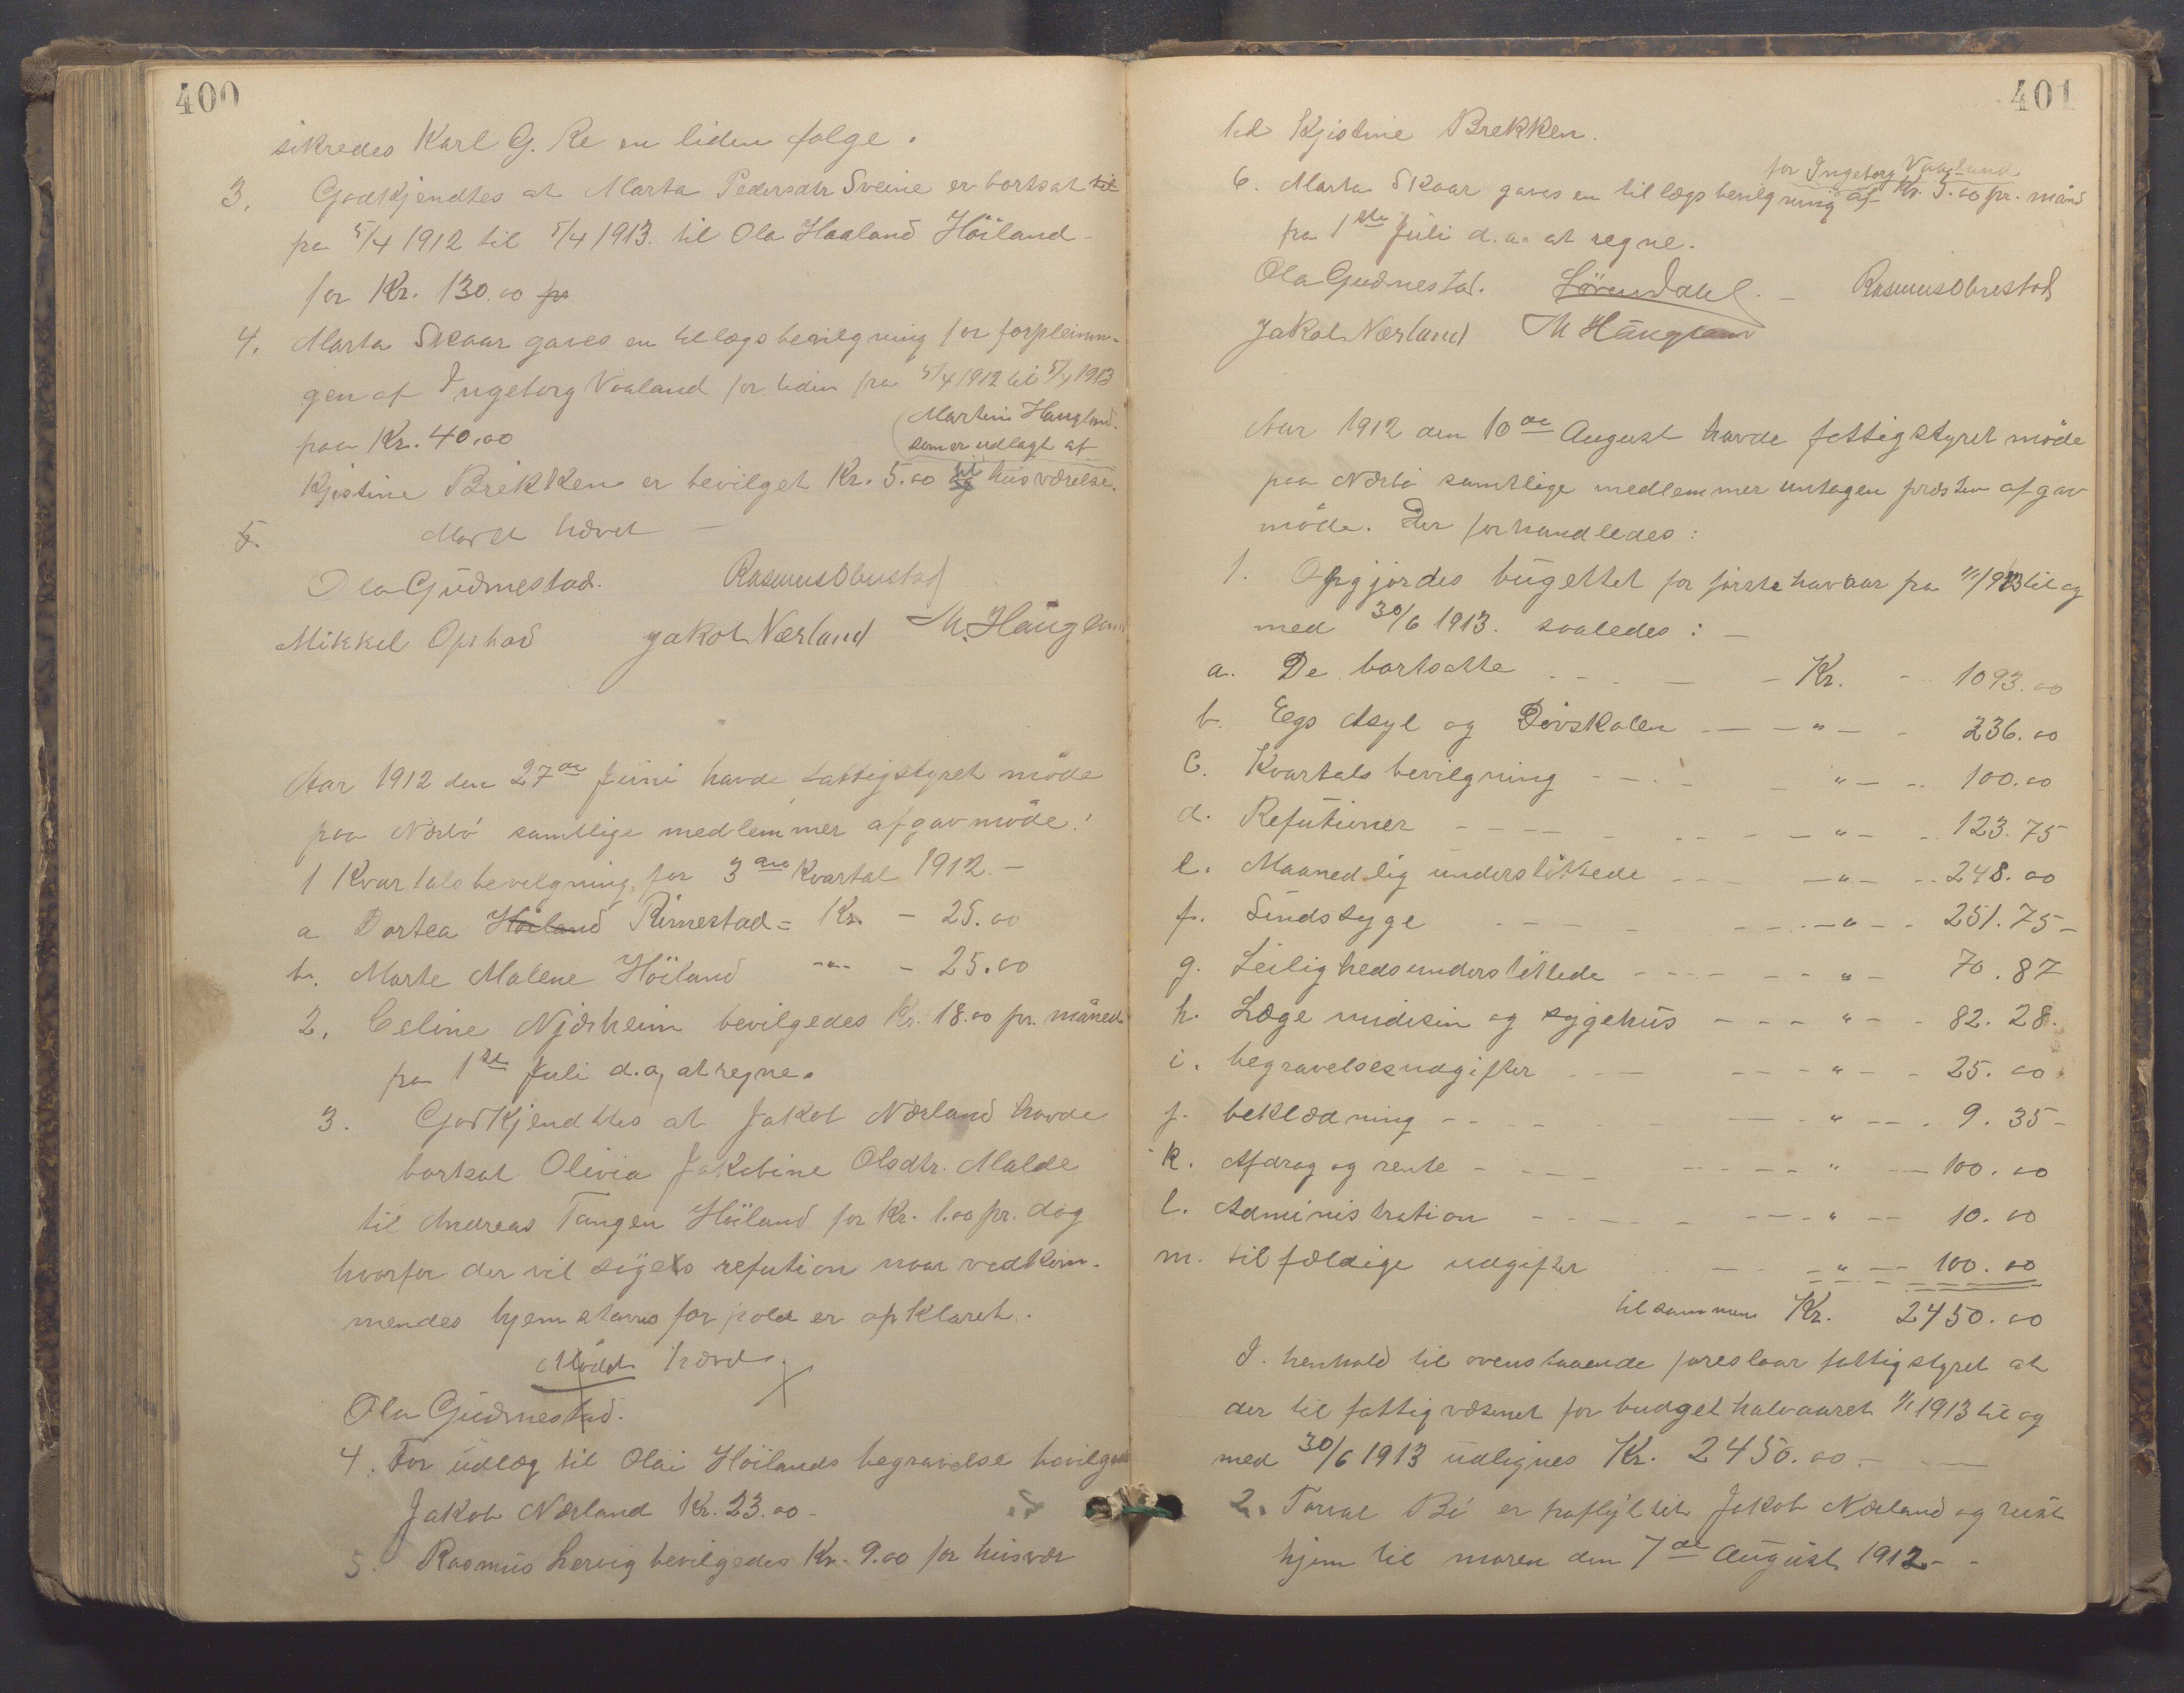 400
sikredes Karl G. Re en liden følge.
3. Godkjendtes at Marta Pedersdtr Sveine er bortsat til
fra 5/4 1912 til 5/4 1913. til Ola Haaland Höiland
for Kr. 130.00 pr
4. Marta Skaar gaves en tillægsbevilgning for forpleinin-
gen af Ingeborg Vaaland for tiden fra 5/4 1912 til 5/4 1913
paa Kr. 40.00
Martin Haugland.
som er udlagt af
Kjistine Brekken er bevilget Kr. 5.00 og til husværelse.
5. Mödet hævet
Ola Gudmestad. Rasmus Obrestad
Mikkel Opstad Jakob Nærland M. Haugland
Aar 1912 den 27de Juni havde fattigstyret möde
paa Nærbö samtlige medlemmer afgav möde.
1 Kvartalsbevilgning for 3die Kvartal 1912.-
a Dortea Höiland Rimestad = Kr. - 25.00
b. Marte Malene Höiland -"- - 25.00
2. Celine Njærheim bevilgedes Kr. 18.00 pr. måned
fra 1ste Juli d.a, at regne.
3. Godkjendttes at Jakob Nærland havde
bortsat Olivia Jakobine Olsdtr. Malde
til Andreas Tangen Höiland for Kr. 1.00 pr. dag
hvorfor der vil søges refution naar vedkom-
mendes hjemstavns forhold er opklaret.
Mödet hævet
Ola Gudmestad.
4. For udlæg til Olai Höilands begravelse bevilgedes
Jakob Nærland Kr. 23.00-
5. Rasmus Lervig bevilgedes Kr. 9.00 for husvær
401
ted Kjistine Brekken.
for Ingeborg Vaaland
6. Marta Skaar gaves en tillægsbevilgning af Kr. 5.00 pr. månd
fra 1ste Juli d.a. at regne.
Ola Gudmestad. Sörendahl. - Rasmus Obrestad
Jakob Nærland M Haugland
Aar 1912 den 10de August havde fattigstyret möde
paa Nærbö samtlige medlemmer untagen præsten afgav
möde. Der forhandledes:
1. Opgjordes bugettet for förste havaar fra 1/1 1913 til og
med 30/6 1913. saaledes: -
a. De bortsatte - Kr. - 1093.00
b. Eegs Asyl og Dövskolen - " - 236.00
C. Kvartals bevilgning - " - 100.00
d. Refutioner - " - 123.75
e. Maanedlig understöttede - " - 248.00
f. Sindssyge - " - 251.75-
g. Leilighedsunderstöttede - " - 70.87
h. Læge midisin og sygehus - " - 82.28.
i. begravelsesudgifter - " - 25.00
j. beklædning - " - 9.35-
k. Afdrag og rente - " - 100.00
l. Administration - " - 10.00
m. tilfældige udgifter - " - 100.00
tilsammen Kr. 2450.00
I. henhold til ovenstaaende foreslaar fattigstyret at
der til fattigvæsenet for budget halvaaret 1/1 1913 til og
med 30/6 1913 udlignes Kr. 2450.00.-
2. Torval Bö er fraflyttet Jakob Nærland og reist
hjem til moren den 7de August 1912.-